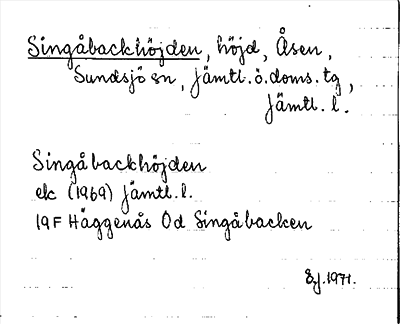 Singåbackhöjden, höjd, Åsen,
Sundsjö sn, Jämtl. ö. doms. tg,
Jämtl. l.
Singåbackhöjden
ek (1969) Jämtl. l.
19F Häggenås 0d Singåbacken
1971.